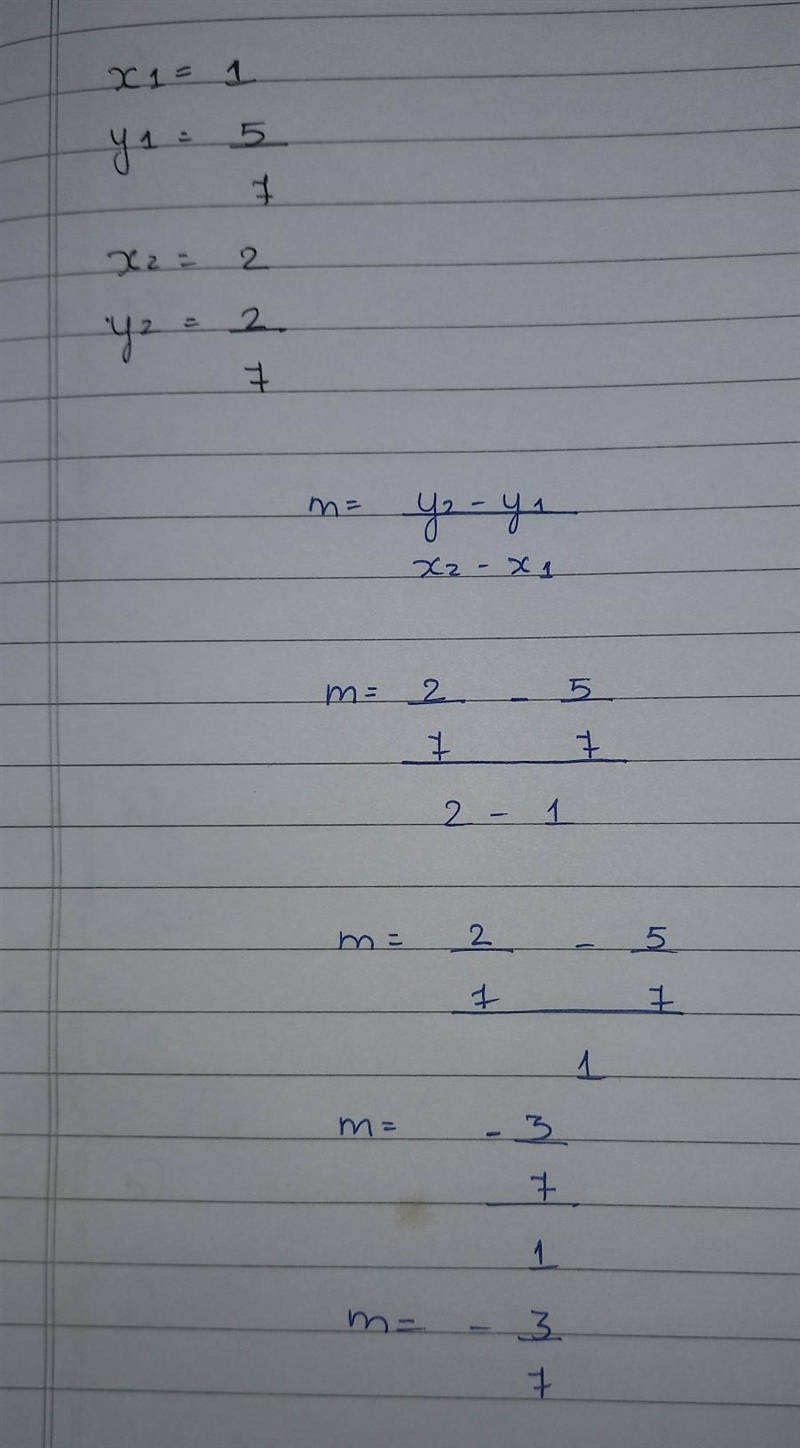 x1 = 1
y1 = 5
7
x2 = 2
y2 = 2
7
m = y2 - y1
x2 - x1
m = 2 - 5
7 7
2 - 1
m = 2 - 5
7 7
1
m = - 3
7
1
m = - 3
7